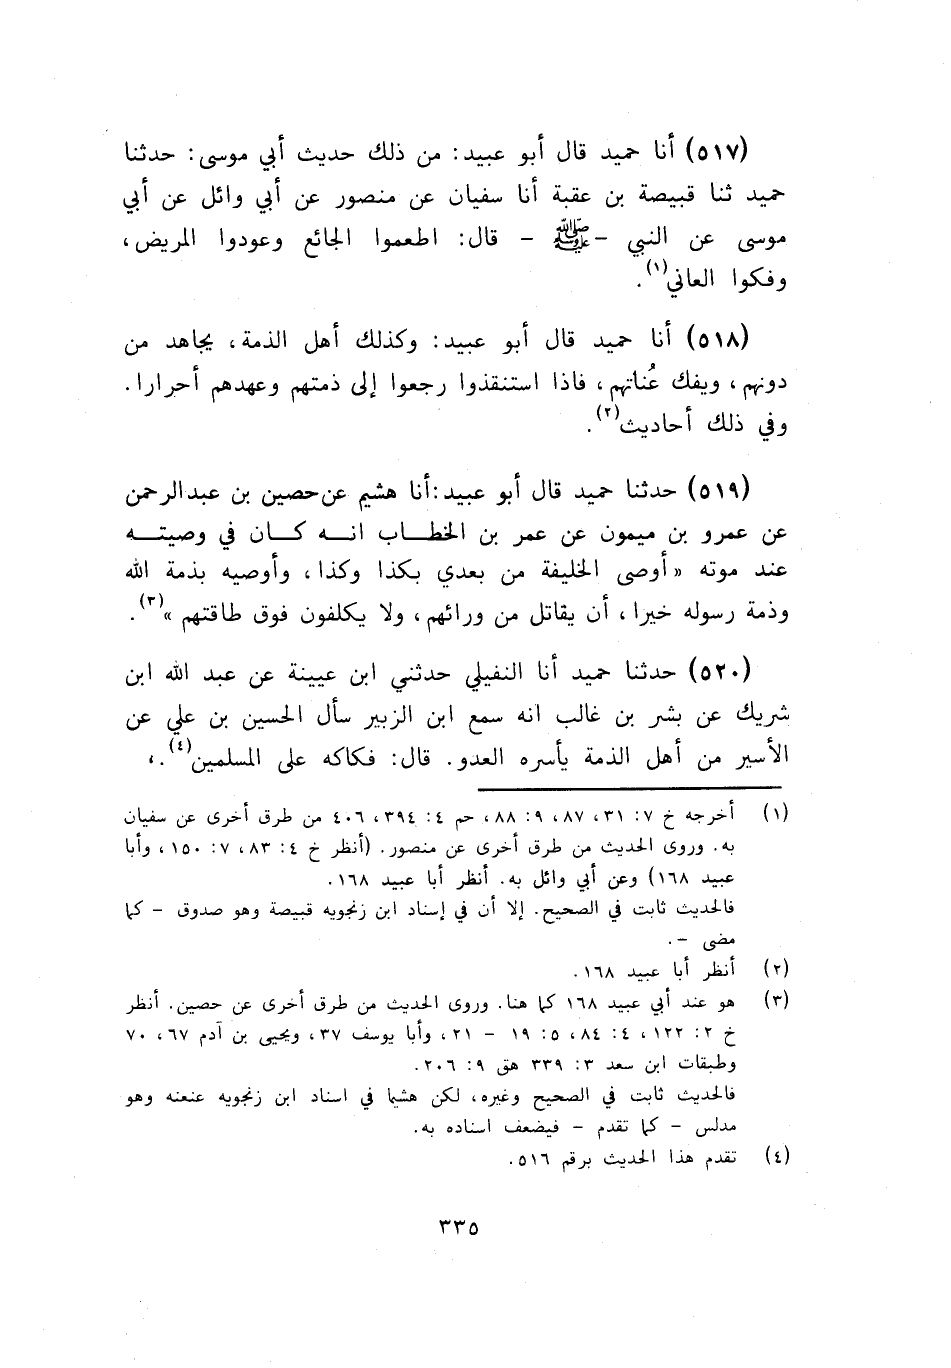 (٥١٧) أنا حميد قال أبو عبيد: من ذلك حديث أبي موسى: حدثنا
حميد ثنا قبيصة بن عقبة أنا سفيان عن منصور عن أبي وائل عن أبي
موسى عن النبي -ﷺ - قال: اطعموا الجائع وعودوا المريض،
وفكوا العاني(١).
(٥١٨) أنا حميد قال أبو عبيد: وكذلك أهل الذمة، يجاهد من
دونهم، ويفك عُناتهم، فاذا استنقذوا رجعوا إلى ذمتهم وعهدهم أحرارا.
وفي ذلك أحاديث(٢).
(٥١٩) حدثنا حميد قال أبو عبيد:أنا هشيم عن حصين بن عبدالرحمن
عن عمرو بن ميمون عن عمر بن الخطاب انه كان في وصيته
عند موته «أوصى الخليفة من بعدي بكذا وكذا، وأوصيه بذمة الله
وذمة رسوله خيرا، أن يقاتل من ورائهم، ولا يكلفون فوق طاقتهم»(٣).
(٥٢٠) حدثنا حميد أنا النفيلي حدثني ابن عيينة عن عبد الله ابن
شريك عن بشر بن غالب انه سمع ابن الزبير سأل الحسين بن علي عن
الأسير من أهل الذمة يأسره العدو. قال: فكاكه على المسلمين(٤).،
(١) أخرجه خ ٧: ٣١، ٨٧، ٩: ٨٨، حم ٤: ٣٩٤، ٤٠٦ من طرق أخرى عن سفيان
به. وروى الحديث من طرق أخرى عن منصور. (أنظر خ ٤: ٨٣، ٧: ١٥٠، وأبا
عبيد ١٦٨) وعن أبي وائل به. أنظر أبا عبيد ١٦٨.
فالحديث ثابت في الصحيح. إلا أن في إسناد ابن زنجويه قبيصة وهو صدوق - كما
مضى -.
(٢) أنظر أبا عبيد ١٦٨.
(٣) هو عند أبي عبيد ١٦٨ كما هنا. وروى الحديث من طرق أخرى عن حصين. أنظر
خ ٢: ١٢٢، ٤: ٨٤، ٥: ١٩ - ٢١، وأبا يوسف ٣٧، ويحيى بن آدم ٦٧، ٧٠
وطبقات ابن سعد ٣: ٣٣٩ هق ٩: ٢٠٦.
فالحديث ثابت في الصحيح وغيره، لكن هشيا في اسناد ابن زنجويه عنعنه وهو
مدلس - كما تقدم - فيضعف اسناده به.
(٤) تقدم هذا الحديث برقم ٥١٦.
٣٣٥